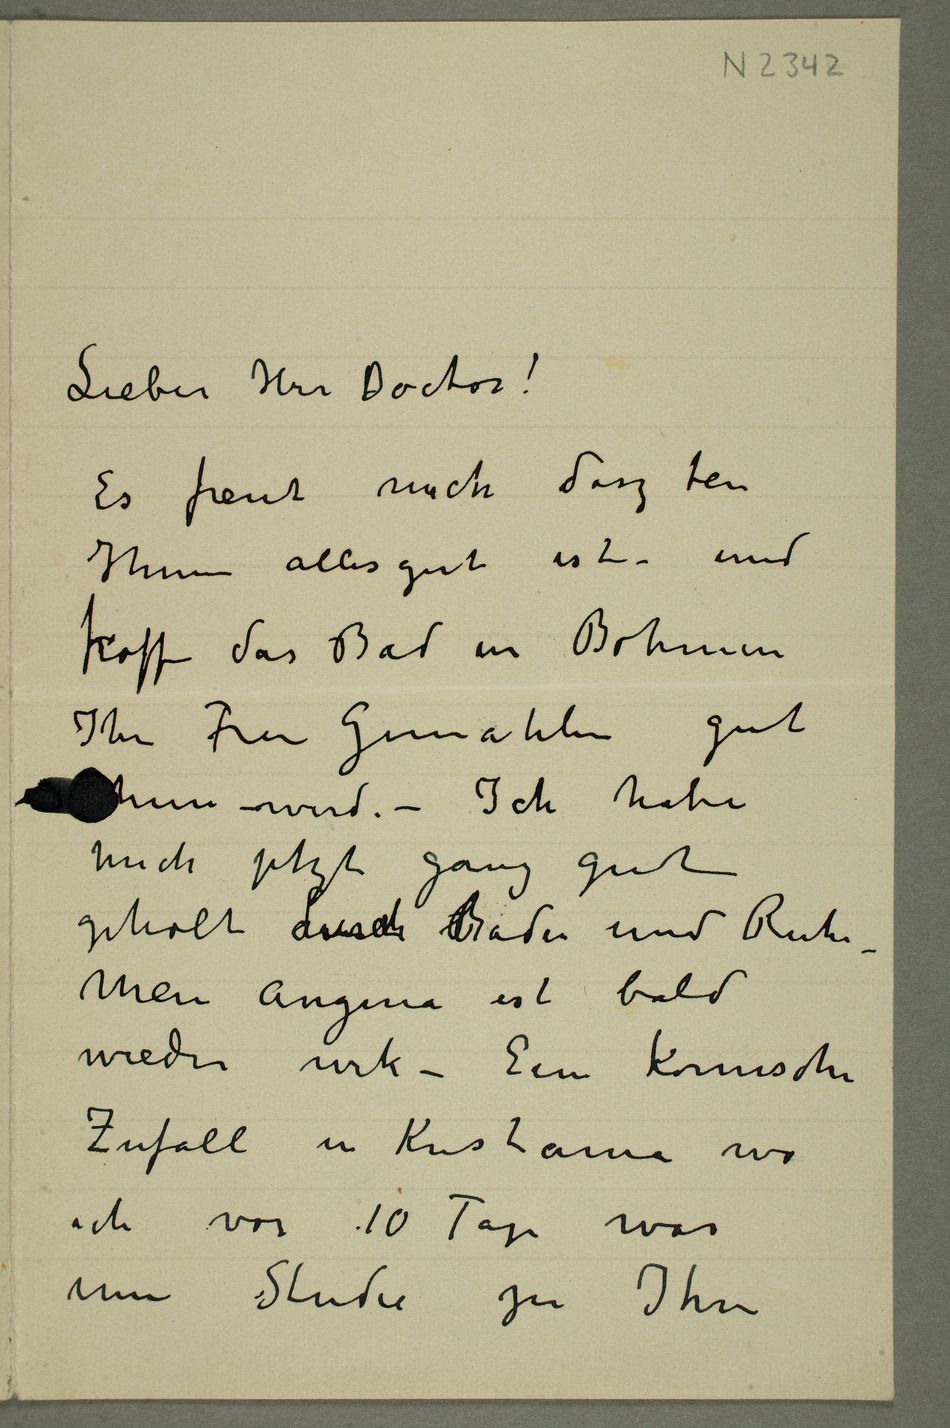 N 2342
Lieber Herr Doctor!
Es freut mich dasz bei
Ihnen alles gut ist – und
hoffe das Bad in Bøhmen
Ihr Frau Gemahlin gut
thun wird. – Ich habe
mich jetzt ganz gut
geholt durch Bäder und Ruhe –
Mein Angina ist bald
wieder wek – Eine Komische
Zufall in Kristiania wo
ich vor 10 Tage war
um Studie zu Ihre